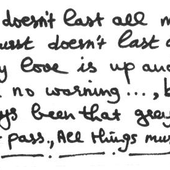 doesn't last all m
urst doesn't last a
y love is up and
no warning..., b
ys been that grey
pass., All things mus